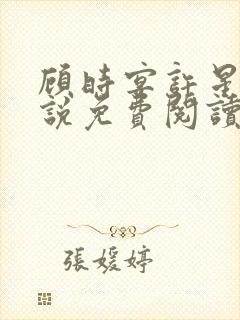 顾時宴許星
説免費閱讀
張媛婷